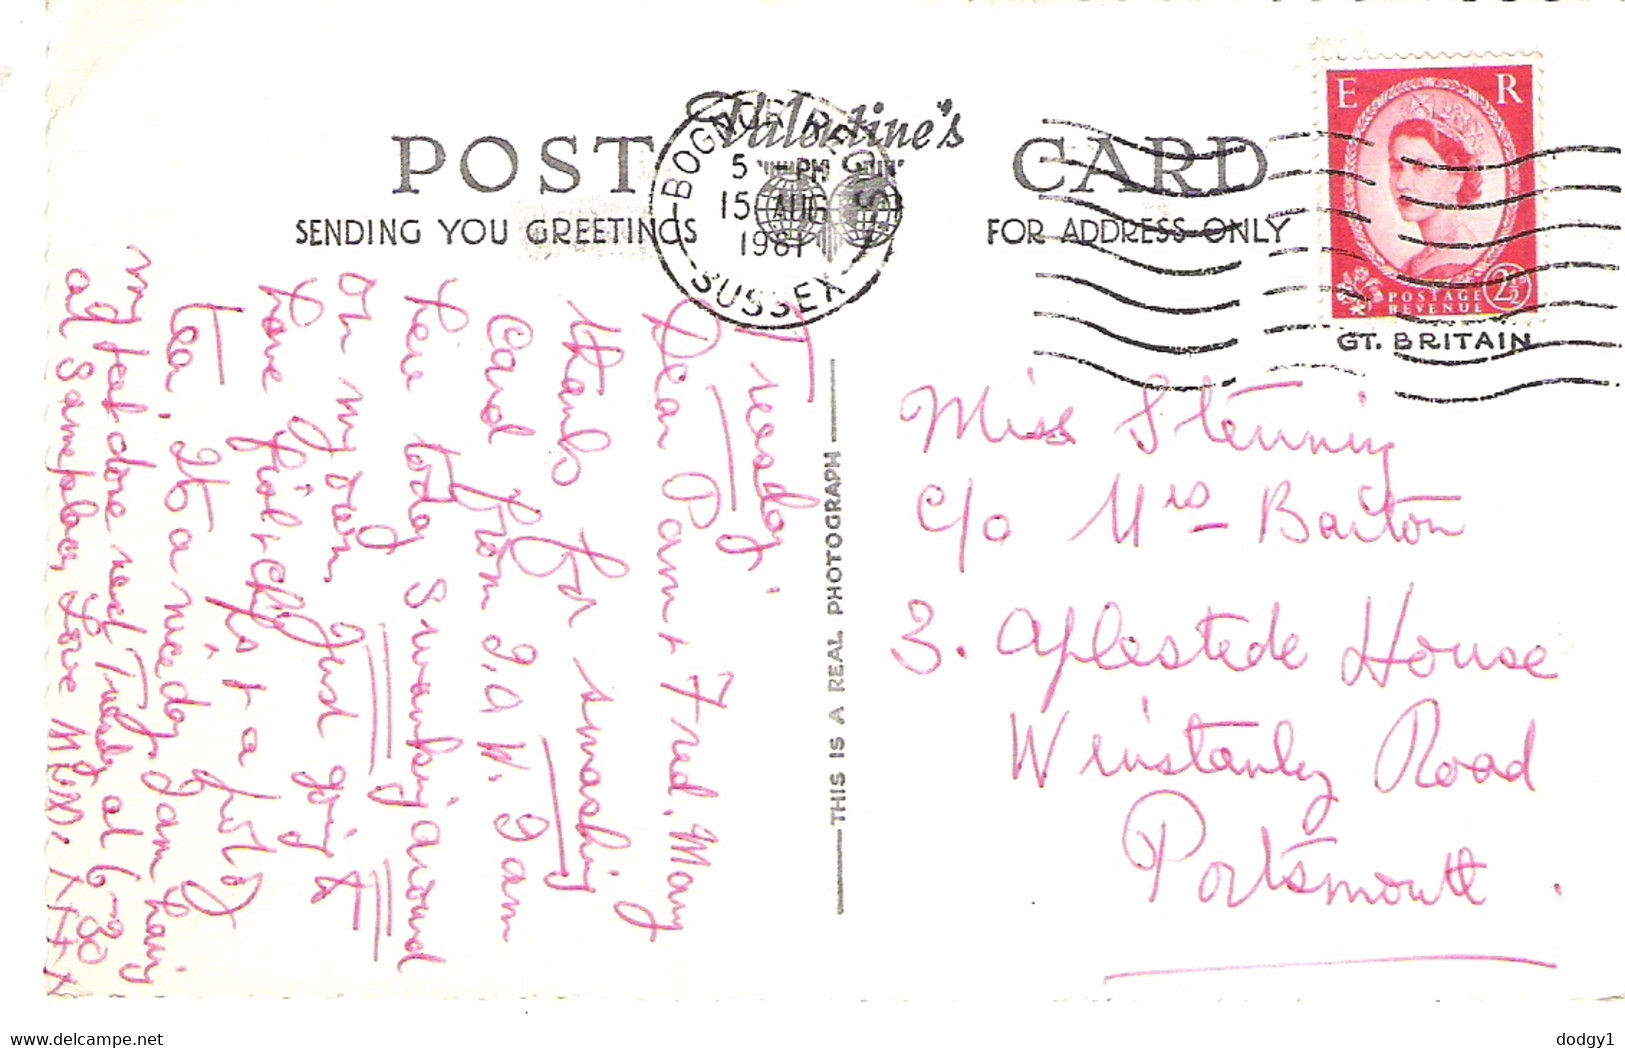 POST Valentine's CARD
SENDING YOU GREETINGS
FOR ADDRESS ONLY
BOGNOR REGIS
5 - PM
15 AUG
1961
SUSSEX
E R
POSTAGE
REVENUE
2½D
GT. BRITAIN
THIS IS A REAL PHOTOGRAPH
Tuesday.
Dear Pam + Fred, Many
thanks for smashing
card from I.O.W. I am
here today Swanking around
on my own, Just going to
have fish + chips + a pot of
tea, its a nice day, I am having
my feet done next Tuesday at 6-30
at Love Mum. XXXX
Miss Stenning
c/o Mrs Barton
3. Aplestede House
Winstanley Road
Portsmouth.
delcampe.net
dodgy1